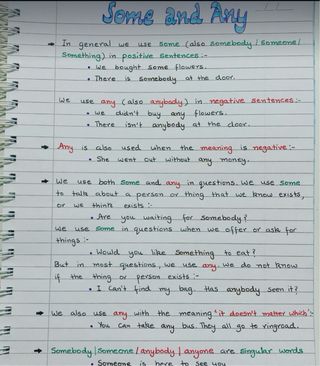 Some and Any
→ In general we use some (also somebody / someone /
something) in positive sentences:-
• We bought some flowers.
• There is somebody at the door.
We use any (also anybody) in negative sentences:-
• We didn't buy any flowers.
• There isn't anybody at the door.
→ Any is also used when the meaning is negative:-
• She went out without any money.
→ We use both some and any in questions. We use some
to talk about a person or thing that we know exists,
or we think exists:-
• Are you waiting for somebody?
We use some in questions when we offer or ask for
things:-
• Would you like something to eat?
But in most questions, we use any. We do not know
if the thing or person exists:-
• I can't find my bag. Has anybody seen it?
→ We also use any with the meaning 'it doesn't matter which':-
• You can take any bus. They all go to ringroad.
→ Somebody | Someone / anybody / anyone are singular words
• Someone is here to see you